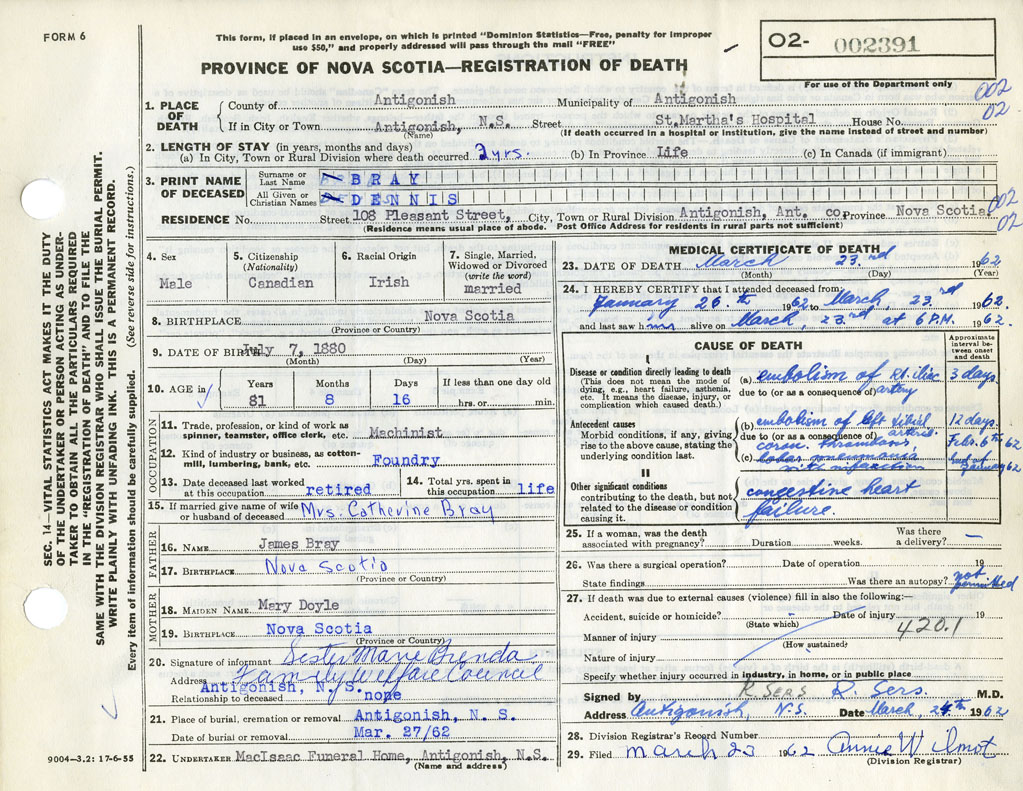 FORM 6
This form, if placed in an envelope, on which is printed "Dominion Statistics—Free, penalty for improper
use $50," and properly addressed will pass through the mail "FREE"
PROVINCE OF NOVA SCOTIA—REGISTRATION OF DEATH
O2- 002391
For use of the Department only
002
02
SEC. 14—VITAL STATISTICS ACT MAKES IT THE DUTY
OF THE UNDERTAKER OR PERSON ACTING AS UNDER-
TAKER TO OBTAIN ALL THE PARTICULARS REQUIRED
IN THE "REGISTRATION OF DEATH" AND TO FILE THE
SAME WITH THE DIVISION REGISTRAR WHO SHALL ISSUE THE BURIAL PERMIT.
WRITE PLAINLY WITH UNFADING INK. THIS IS A PERMANENT RECORD.
Every item of information should be carefully supplied. (See reverse side for instructions.)
1. PLACE OF DEATH
County of Antigonish Municipality of Antigonish
If in City or Town Antigonish, N.S. Street St.Martha's Hospital House No.
(Name) (If death occurred in a hospital or institution, give the name instead of street and number)
2. LENGTH OF STAY (in years, months and days)
(a) In City, Town or Rural Division where death occurred 2 yrs. (b) In Province Life (c) In Canada (if immigrant)
3. PRINT NAME OF DECEASED
Surname or Last Name BRAY
All Given or Christian Names DENNIS
002
02
RESIDENCE No. Street 108 Pleasant Street, City, Town or Rural Division Antigonish, Ant. co. Province Nova Scotia
(Residence means usual place of abode. Post Office Address for residents in rural parts not sufficient)
4. Sex
Male
5. Citizenship
(Nationality)
Canadian
6. Racial Origin
Irish
7. Single, Married,
Widowed or Divorced
(write the word)
married
8. BIRTHPLACE Nova Scotia
(Province or Country)
9. DATE OF BIRTH July 7, 1880
(Month) (Day) (Year)
10. AGE in
Years Months Days If less than one day old
81 8 16 hrs. or min.
OCCUPATION
11. Trade, profession, or kind of work as
spinner, teamster, office clerk, etc. Machinist
12. Kind of industry or business, as cotton-
mill, lumbering, bank, etc. Foundry
13. Date deceased last worked
at this occupation retired
14. Total yrs. spent in
this occupation life
15. If married give name of wife
or husband of deceased Mrs. Catherine Bray
FATHER
16. NAME James Bray
17. BIRTHPLACE Nova Scotia
(Province or Country)
MOTHER
18. MAIDEN NAME Mary Doyle
19. BIRTHPLACE Nova Scotia
(Province or Country)
20. Signature of informant Sister Marie Brenda
Address Family Welfare Council
Antigonish, N. S.
Relationship to deceased none
21. Place of burial, cremation or removal Antigonish, N. S.
Date of burial or removal Mar. 27/62
22. UNDERTAKER MacIsaac Funeral Home, Antigonish, N.S.
(Name and address)
9004—3.2: 17-6-55
MEDICAL CERTIFICATE OF DEATH
23. DATE OF DEATH March 23.rd 1962
(Month) (Day) (Year)
24. I HEREBY CERTIFY that I attended deceased from:
January 26.th 1962 to March, 23.rd 1962.
and last saw him alive on March, 23.rd at 6 P.M. 1962.
CAUSE OF DEATH
Approximate
interval be-
tween onset
and death
I
Disease or condition directly leading to death
(This does not mean the mode of
dying, e.g., heart failure, asthenia,
etc. It means the disease, injury, or
complication which caused death.)
(a) embolism of Rt. iliac 3 days.
due to (or as consequence of) artery
Antecedent causes
Morbid conditions, if any, giving
rise to the above cause, stating the
underlying condition last.
(b) embolism of left tibial 12 days.
due to (or as a consequence of) artery.
coron. thrombosis Feb. 6th 62
(c) lobar pneumonia end of
with infarction January 62
II
Other significant conditions
contributing to the death, but not
related to the disease or condition
causing it.
congestive heart
failure.
25. If a woman, was the death
associated with pregnancy? Duration weeks. Was there
a delivery? —
26. Was there a surgical operation? Date of operation 19
State findings Was there an autopsy? not
permitted
27. If death was due to external causes (violence) fill in also the following:—
Accident, suicide or homicide? Date of injury 19
(State which) 420.1
Manner of injury
(How sustained)
Nature of injury
Specify whether injury occurred in industry, in home, or in public place
Signed by R. SERS R. Sers. M.D.
Address Antigonish, N.S. Date March, 24.th 1962
28. Division Registrar's Record Number
29. Filed March 23 1962 Annie Wilmot
(Division Registrar)